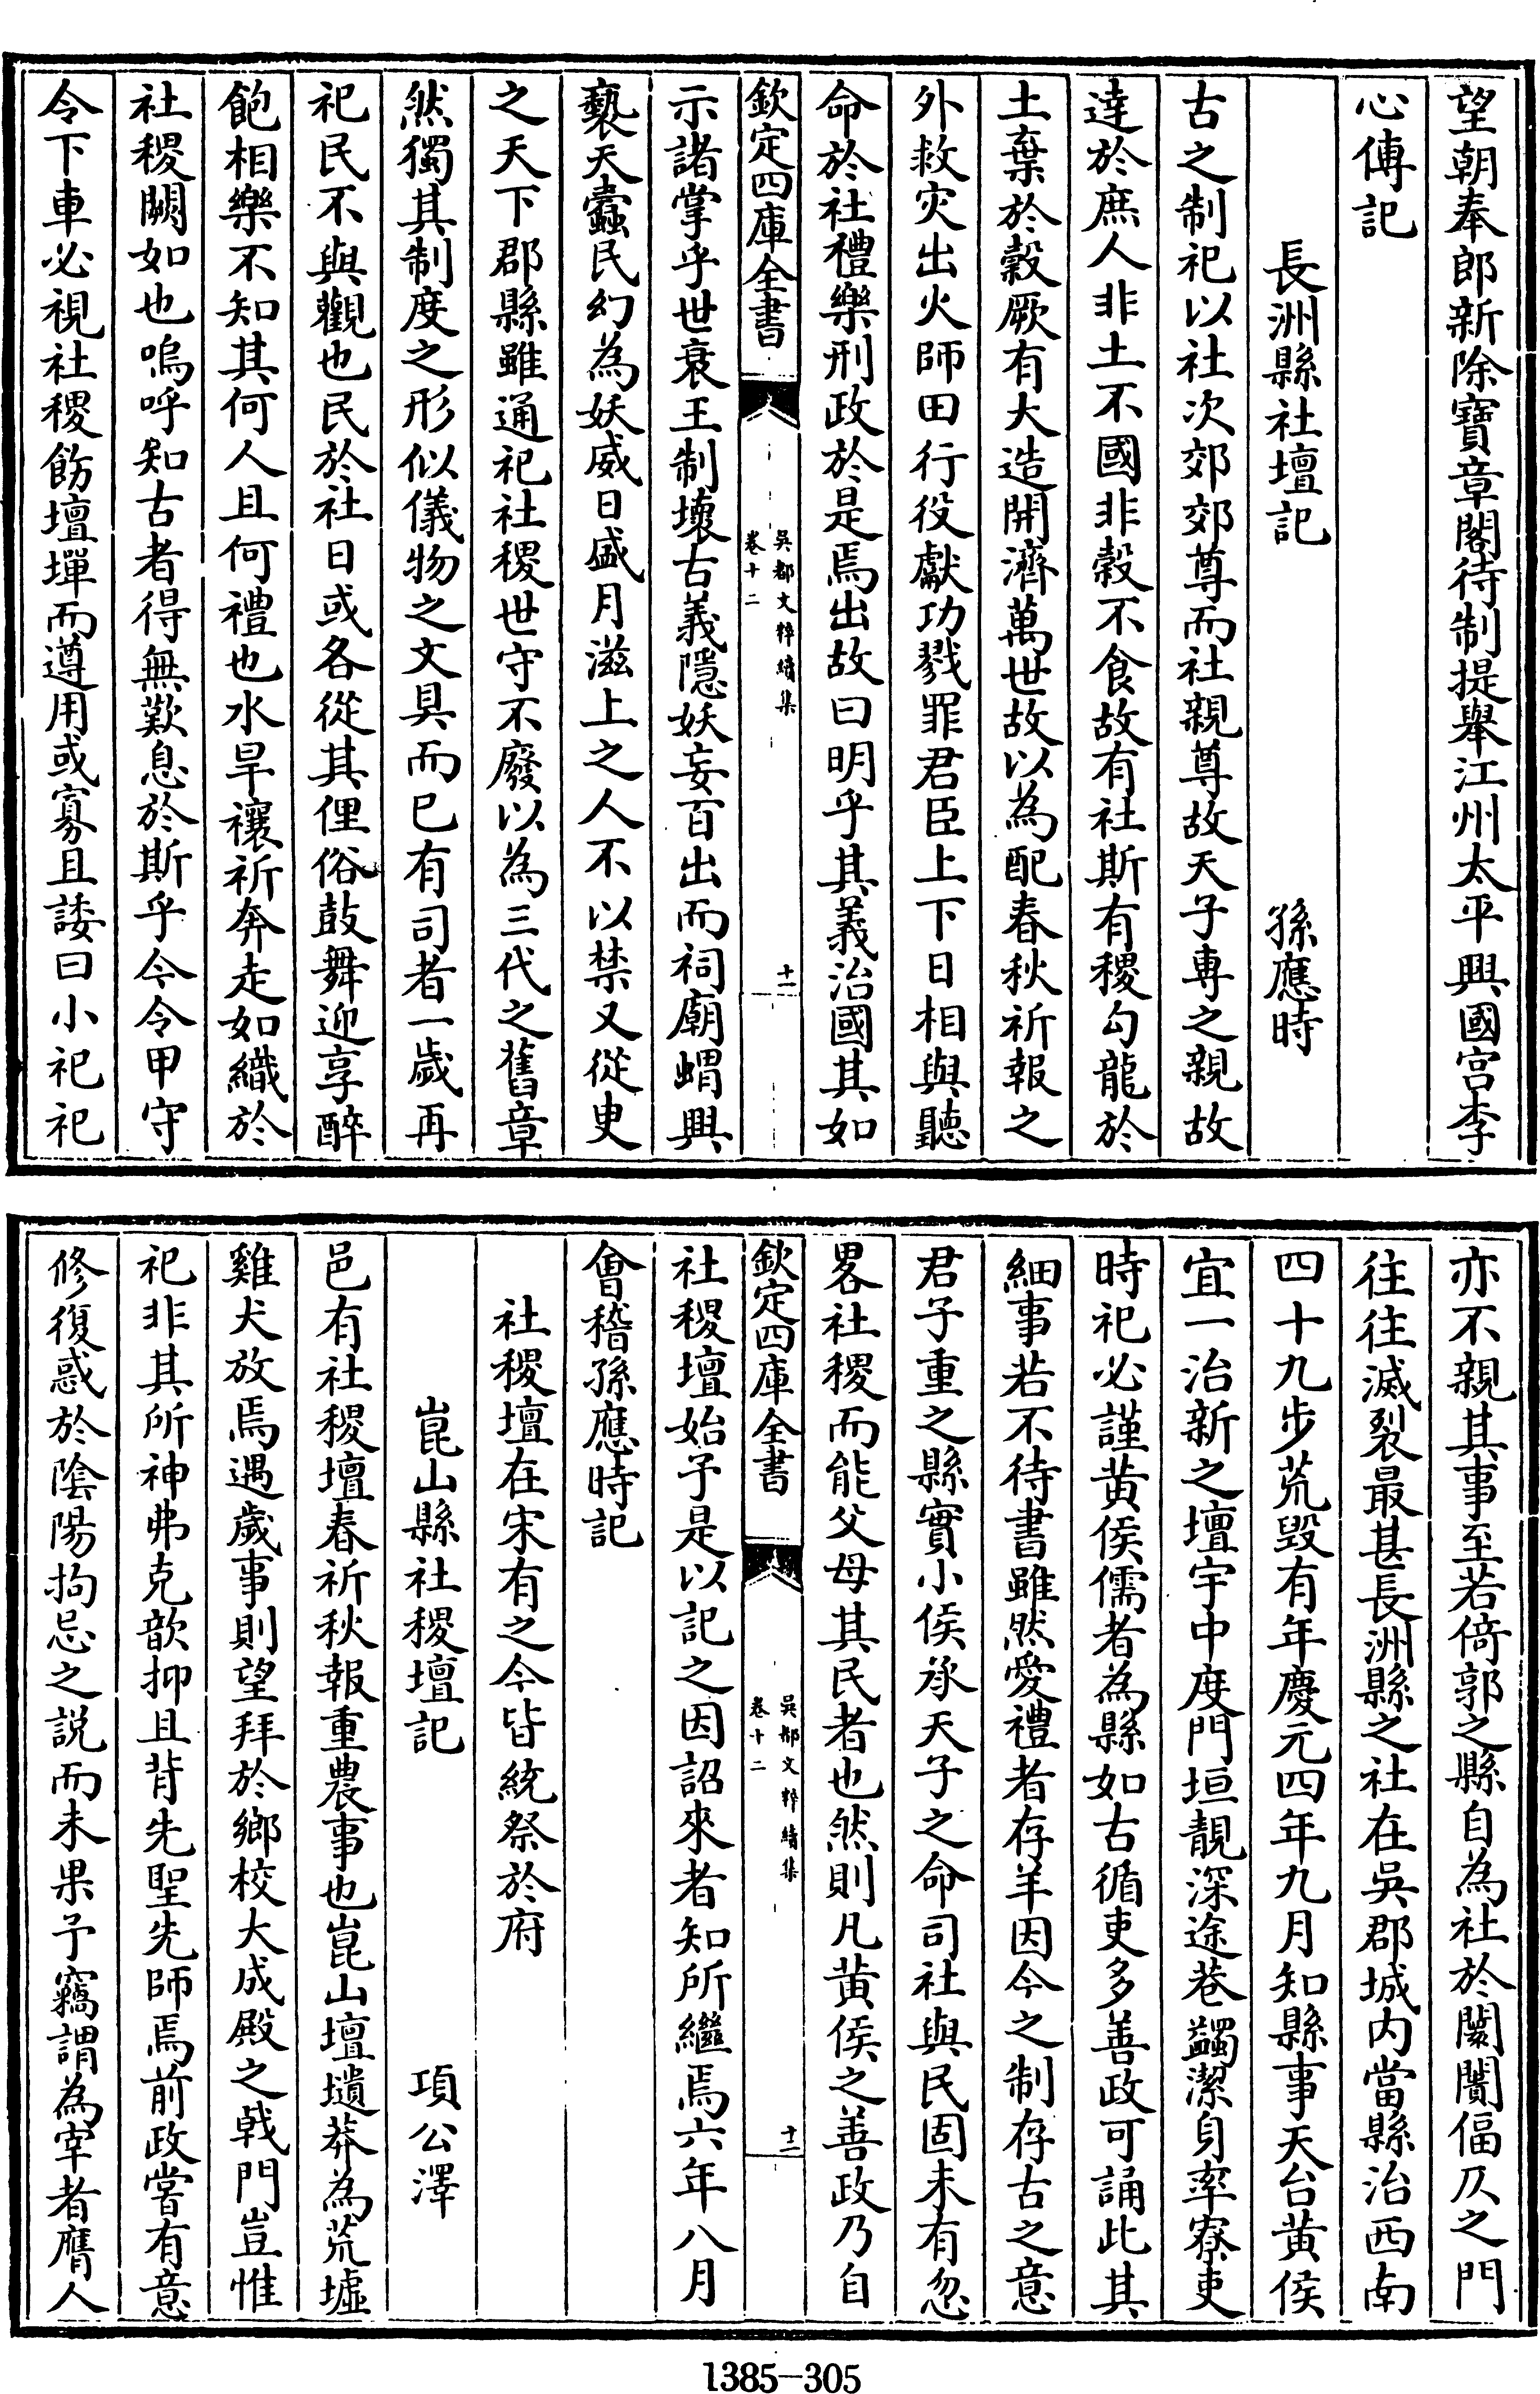 望朝奉郎新除寶章閣待制提舉江州太平興國宮李
心傳記
長洲縣社壇記　孫應時
古之制祀以社次郊郊尊而社親尊故天子專之親故
達於庶人非土不國非穀不食故有社斯有稷勾龍於
土棄於穀厥有大造開濟萬世故以為配春秋祈報之
外救灾出火師田行役獻功戮罪君臣上下日相與聽
命於社禮樂刑政於是焉出故曰明乎其義治國其如
欽定四庫全書　吳都文粹續集　卷十二　十一
示諸掌乎世衰王制壞古義隱妖妄百出而祠廟蝟興
褻天蠹民幻為妖威日盛月滋上之人不以禁又從吏
之天下郡縣雖通祀社稷世守不廢以為三代之舊章
然獨其制度之形似儀物之文具而已有司者一歲再
祀民不與觀也民於社日或各從其俚俗鼓舞迎享醉
飽相樂不知其何人且何禮也水旱禳祈奔走如織於
社稷闕如也嗚呼知古者得無歎息於斯乎今令甲守
令下車必視社稷飭壇墠而遵用或寡且諉曰小祀祀
亦不親其事至若倚郭之縣自為社於闤闠偪仄之門
往往滅裂最甚長洲縣之社在吳郡城内當縣治西南
四十九步荒毁有年慶元四年九月知縣事天台黄侯
宜一治新之壇宇中度門垣靚深途巷蠲潔身率寮吏
時祀必謹黄侯儒者為縣如古循吏多善政可誦此其
細事若不待書雖然愛禮者存羊因今之制存古之意
君子重之縣實小侯承天子之命司社與民固未有忽
畧社稷而能父母其民者也然則凡黄侯之善政乃自
欽定四庫全書　吳都文粹續集　卷十二　十二
社稷壇始予是以記之因詔來者知所繼焉六年八月
會稽孫應時記
社稷壇在宋有之今皆統祭於府
崑山縣社稷壇記　項公澤
邑有社稷壇春祈秋報重農事也崑山壇壝莽為荒墟
雞犬放焉遇歲事則望拜於鄉校大成殿之戟門豈惟
祀非其所神弗克歆抑且背先聖先師焉前政嘗有意
修復惑於陰陽拘忌之說而未果予竊謂為宰者膺人
1385-305